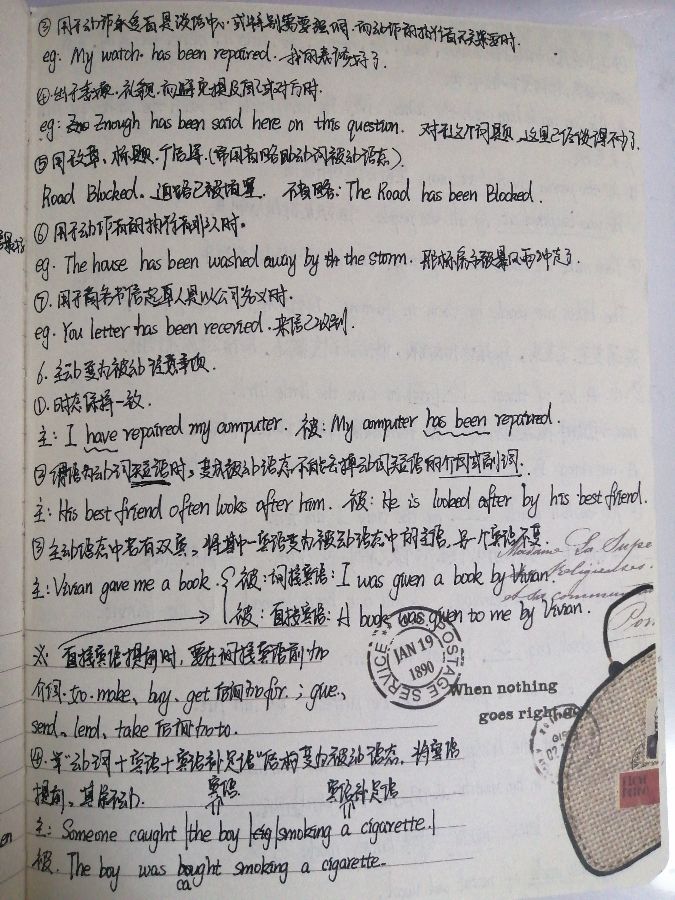 ③ 用于动作承受者是谈话中心或特别需要强调,而动作的执行者不关紧要时.
eg: My watch. has been repaired. 我的表修好了.
④ 出于委婉. 礼貌. 而避免提及自己或对方时.
eg: Enough has been said here on this question. 对于这个问题, 这里已经谈得不少了.
⑤ 用于文章, 标题, 广告等.(常用省略助动词被动语态).
Road Blocked. 道路已被堵塞. 不省略: The Road has been Blocked.
⑥ 用于动作有的执行者非人时.
eg. The house has been washed away by the storm. 那栋房子被暴风雨冲走了.
⑦. 用于商务书信或写人是以公司名义时.
eg. You letter has been received. 来信已收到.
6. 主动变为被动注意事项.
①. 时态保持一致.
主: I have repaired my computer. 被: My computer has been repaired.
② 谓语为动词短语时, 变成被动语态不能去掉动词短语的介词或副词.
主: His best friend often looks after him. 被: He is looked after by his best friend.
③ 主动语态中若有双宾, 将其中一宾语变为被动语态中的主语, 另一个宾语不变.
主: Vivian gave me a book. 被: 间接宾语: I was given a book by Vivian.
被: 直接宾语: A book was given to me by Vivian.
※ 直接宾语提前时, 要在间接宾语前加
介词. to. make、buy、get 后面加for.; give、
send、lend、take 后面加to.
④. 等"动词+宾语+宾语补足语"结构变为被动语态, 将宾语
提前, 其后不动. 宾语 宾语补足语
主: Someone caught |the boy |smoking a cigarette.|
被. The boy was caught smoking a cigarette.
Madame La Supe
Religieuses.
et sa commun
Pon
POSTAGE SERVICE
JAN 19
1890
When nothing
goes right go
I LOVE